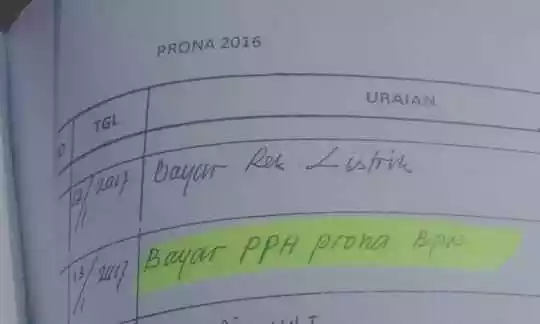 PRONA 2016
TGL
URAIAN
Bayar Rek Listrik
13/2017
Bayar PPH prona BPN